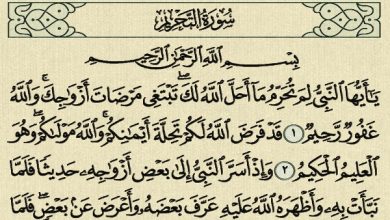 سُورَةُ التَّحْرِيمِ
بِسْمِ اللَّهِ الرَّحْمَٰنِ الرَّحِيمِ
يَٰٓأَيُّهَا ٱلنَّبِىُّ لِمَ تُحَرِّمُ مَآ أَحَلَّ ٱللَّهُ لَكَ ۖ تَبْتَغِى مَرْضَاتَ أَزْوَٰجِكَ ۚ وَٱللَّهُ
غَفُورٌ رَّحِيمٌ ١ قَدْ فَرَضَ ٱللَّهُ لَكُمْ تَحِلَّةَ أَيْمَٰنِكُمْ ۚ وَٱللَّهُ مَوْلَىٰكُمْ ۖ وَهُوَ
ٱلْعَلِيمُ ٱلْحَكِيمُ ٢ وَإِذْ أَسَرَّ ٱلنَّبِىُّ إِلَىٰ بَعْضِ أَزْوَٰجِهِۦ حَدِيثًا فَلَمَّا
نَبَّأَتْ بِهِۦ وَأَظْهَرَهُ ٱللَّهُ عَلَيْهِ عَرَّفَ بَعْضَهُۥ وَأَعْرَضَ عَنۢ بَعْضٍ ۖ فَلَمَّا